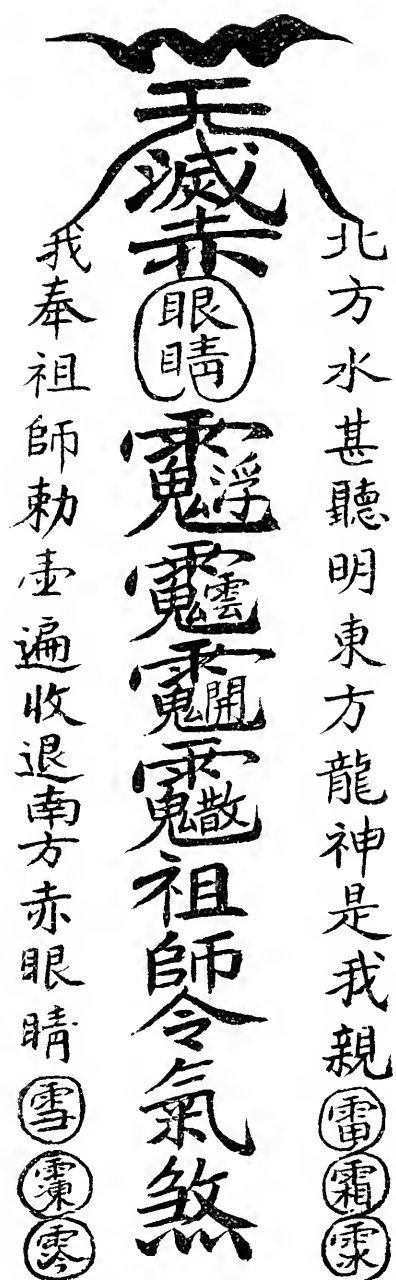 北方水甚聽明東方龍神是我親雷霜
滅赤
眼睛
浮
雲
開
散
祖師令氣煞
我奉祖師勅壶遍收退南方赤眼睛雪